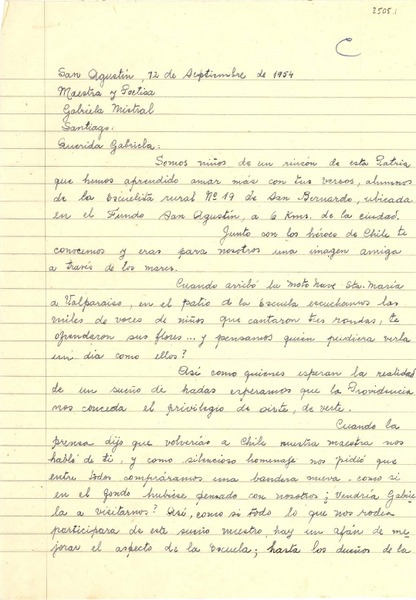 2505.1
C
San Agustín, 12 de Septiembre de 1954
Maestra y Poetisa
Gabriela Mistral
Santiago.
Querida Gabriela:
Somos niños de un rincón de esta Patria
que hemos aprendido amar más con tus versos, alumnos
de la Escuelita rural Nº 19 de San Bernardo, ubicada
en el Fundo San Agustín, a 6 Kms. de la ciudad.
Junto con los héroes de Chile te
conocimos y eras para nosotros una imagen amiga
a través de los mares.
Cuando arribó la Moto Nave Sta. María
a Valparaíso, en el patio de la Escuela escuchamos las
miles de voces de niños que cantaron tus rondas, te
ofrendaron sus flores... y pensamos quien pudiera verla
un día como ellos?
Así como quienes esperan la realidad
de un sueño de hadas esperamos que la Providencia
nos conceda el privilegio de oirte, de verte.
Cuando la
prensa dijo que volverías a Chile nuestra maestra nos
habló de ti, y como silencioso homenaje nos pidió que
entre todos compráramos una bandera nueva, como si
en el fondo hubiese pensado con nosotros ¿Vendría Gabrie
la a visitarnos? Así, como si todo lo que nos rodea
participara de este sueño nuestro, hay un afán de me
jorar el aspecto de la Escuela; hasta los dueños de la